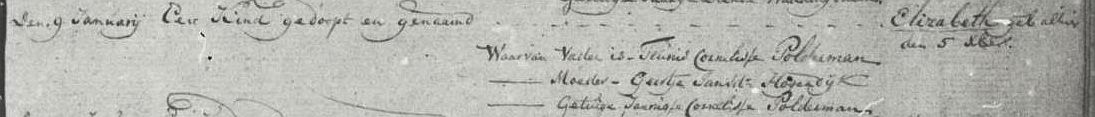 Den 9 Januarij Een Kind gedoopt en genaamd - - - - - - - - - Elizabeth geb. alhier
den 5 dez.
Waarvan Vader is - Teunis Cornelisse Polderman
—— Moeder - Geertje Jansdr Hogendijk
—— Getuige Cornelisse Polderman